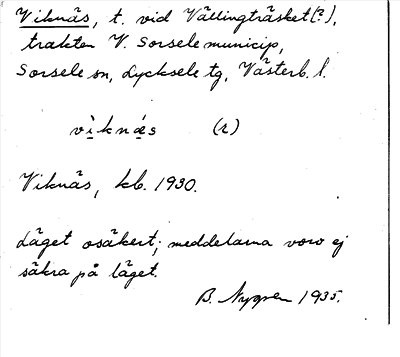 Viknäs, t. vid Vällingträsket(?),
trakten V. Sorsele municip,
Sorsele sn, Lycksele tg, Västerb. l.
vìknä̀s (r)
Viknäs, kb. 1930.
Läget osäkert; meddelarna voro ej
säkra på läget.
B. Nygren 1935.